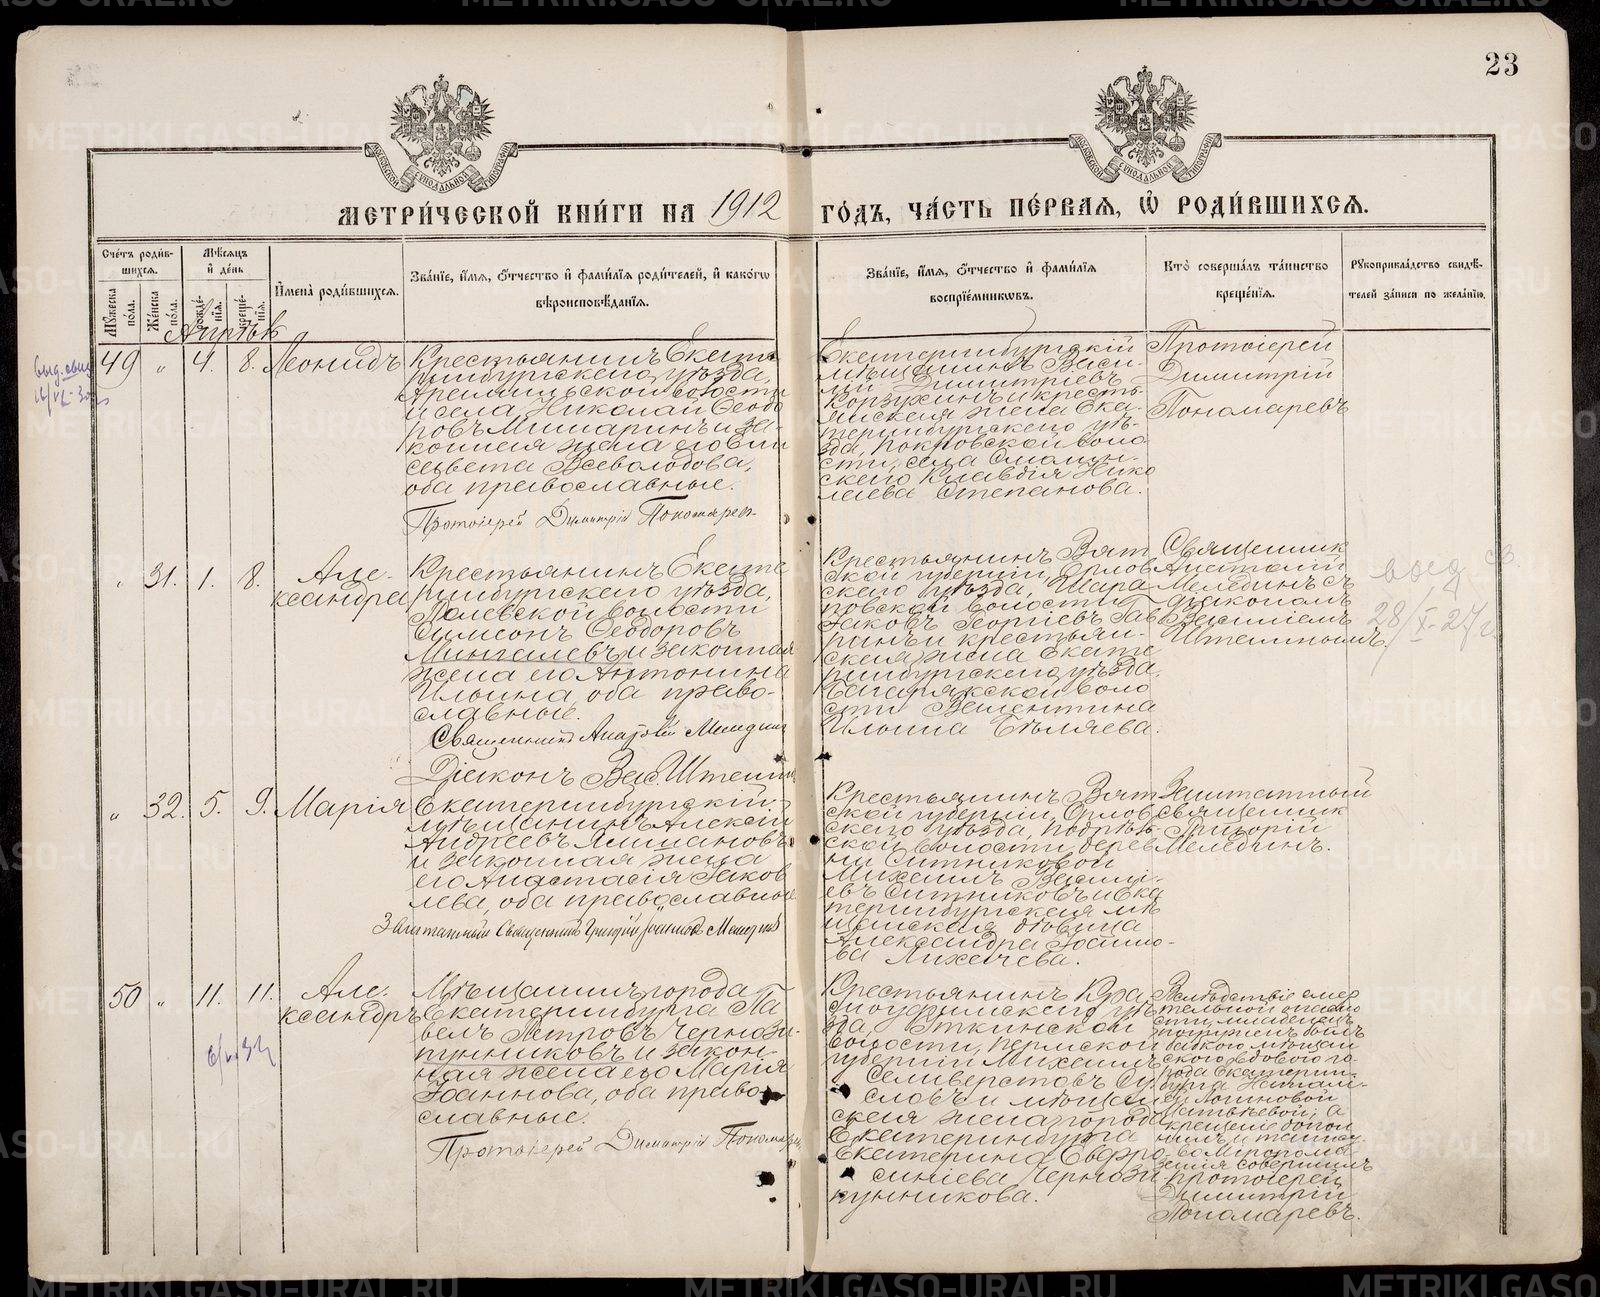 23
МЕТРИ́ЧЕСКОЙ КНИ́ГИ НА 1912 ГО́ДЪ, ЧА́СТЬ ПЕ́РВАЯ, Ѽ РОДИ́ВШИХСЯ.
Сче́тъ роди́в-
шихся.
Му́жеска по́ла.
Же́нска по́ла.
Мѣ́сяцъ
и де́нь
рожде́-
нїя.
креще́-
нїя.
И́мена роди́вшихся.
Зва́нїе, и́мя, о́тчество и фами́лїя роди́телей, и како́гѡ
вѣроисповѣ́данїя.
Зва́нїе, и́мя, о́тчество и фами́лїя
воспрїе́мниковъ.
Кто̀ соверша́лъ та́инство
креще́нїя.
Рукоприкла́дство свидѣ́-
телей за́писи по жела́нїю.
Апрѣль
49 " 4. 8. Леонидъ
Крестьянинъ Екате
ринбургскаго уѣзда,
Арамильской волости
и села, Николай Ѳеодо
ровъ Мишаринъ и за-
конная жена его Ели
савета Всеволодова,
оба православные.
Протоіерей Димитрій Пономарев
Екатеринбургскій
мѣщанинъ Васи-
лій Димитріевъ
Корзухинъ и кресть-
янская жена Ека-
теринбургскаго уѣ-
зда, Покровской воло
сти, села Смолин-
скаго Клавдія Нико
лаева Степанова.
Протоіерей
Димитрій
Пономаревъ
" 31. 1. 8. Але-
ксандра
Крестьянинъ Екате
ринбургскаго уѣзда,
Полевской волости
Симеонъ Ѳеодоровъ
Мингалевъ и законная
жена его Антонина
Ильина, оба право-
славные.
Священникъ Анатолій Меледин
Діаконъ Вас. Штенни
Крестьянинъ Вят
ской губерніи, Орлов
скаго уѣзда, Шара
повской волости
Іаковъ Георгіевъ Гав
ринъ и крестьян-
ская жена Екате
ринбургскаго уѣзда,
Багарякской воло
сти Валентина
Ильина Бѣляева.
Священник
Анатолій
Мелединъ съ
діакономъ
Василіемъ
Штенниковымъ
выд. св.
28/X-27 г.
" 32. 5. 9. Марія
Екатеринбургскій
мѣщанинъ Алексѣй
Андреевъ Ялимановъ
и законная жена
его Анастасія Іаков
лева, оба православные
Заштатный Священникъ Григорій Мелединъ
Крестьянинъ Вят
ской губерніи, Орлов
скаго уѣзда, Подрѣль
ской волости, дерев
ни Ситниковой
Михаилъ Василі-
евъ Ситниковъ и Ека
теринбургская мѣ
щанская дѣвица
Александра Іоанно-
ва Лихачева.
Заштатный
священник
Григорій
Мелединъ.
50 " 11. 11. Але-
ксандръ
Мѣщанинъ города
Екатеринбурга Па
велъ Петровъ Чернози-
пунниковъ и закон-
ная жена его Марія
Іоаннова, оба право-
славные.
Протоіерей Димитрій Пономарев
Крестьянинъ Кра
сноуфимскаго уѣ
зда, Уткинской
волости, Пермской
губерніи Михаилъ
Селиверстовъ Су
словъ и мѣщан
ская жена города
Екатеринбурга
Екатерина Евфро-
синіева Чернози-
пунникова.
Вслѣдствіе смер
тельной опасно
сти, младенецъ
погруженъ былъ
бабкою мѣщан
скою вдовою го-
рода Екатерин-
бурга Наталі-
ей Логиновой
Матвѣевой; а
крещеніе допол
нилъ и таин
во Мѵропома
занія совершилъ
протоіерей
Димитрій
Пономаревъ.